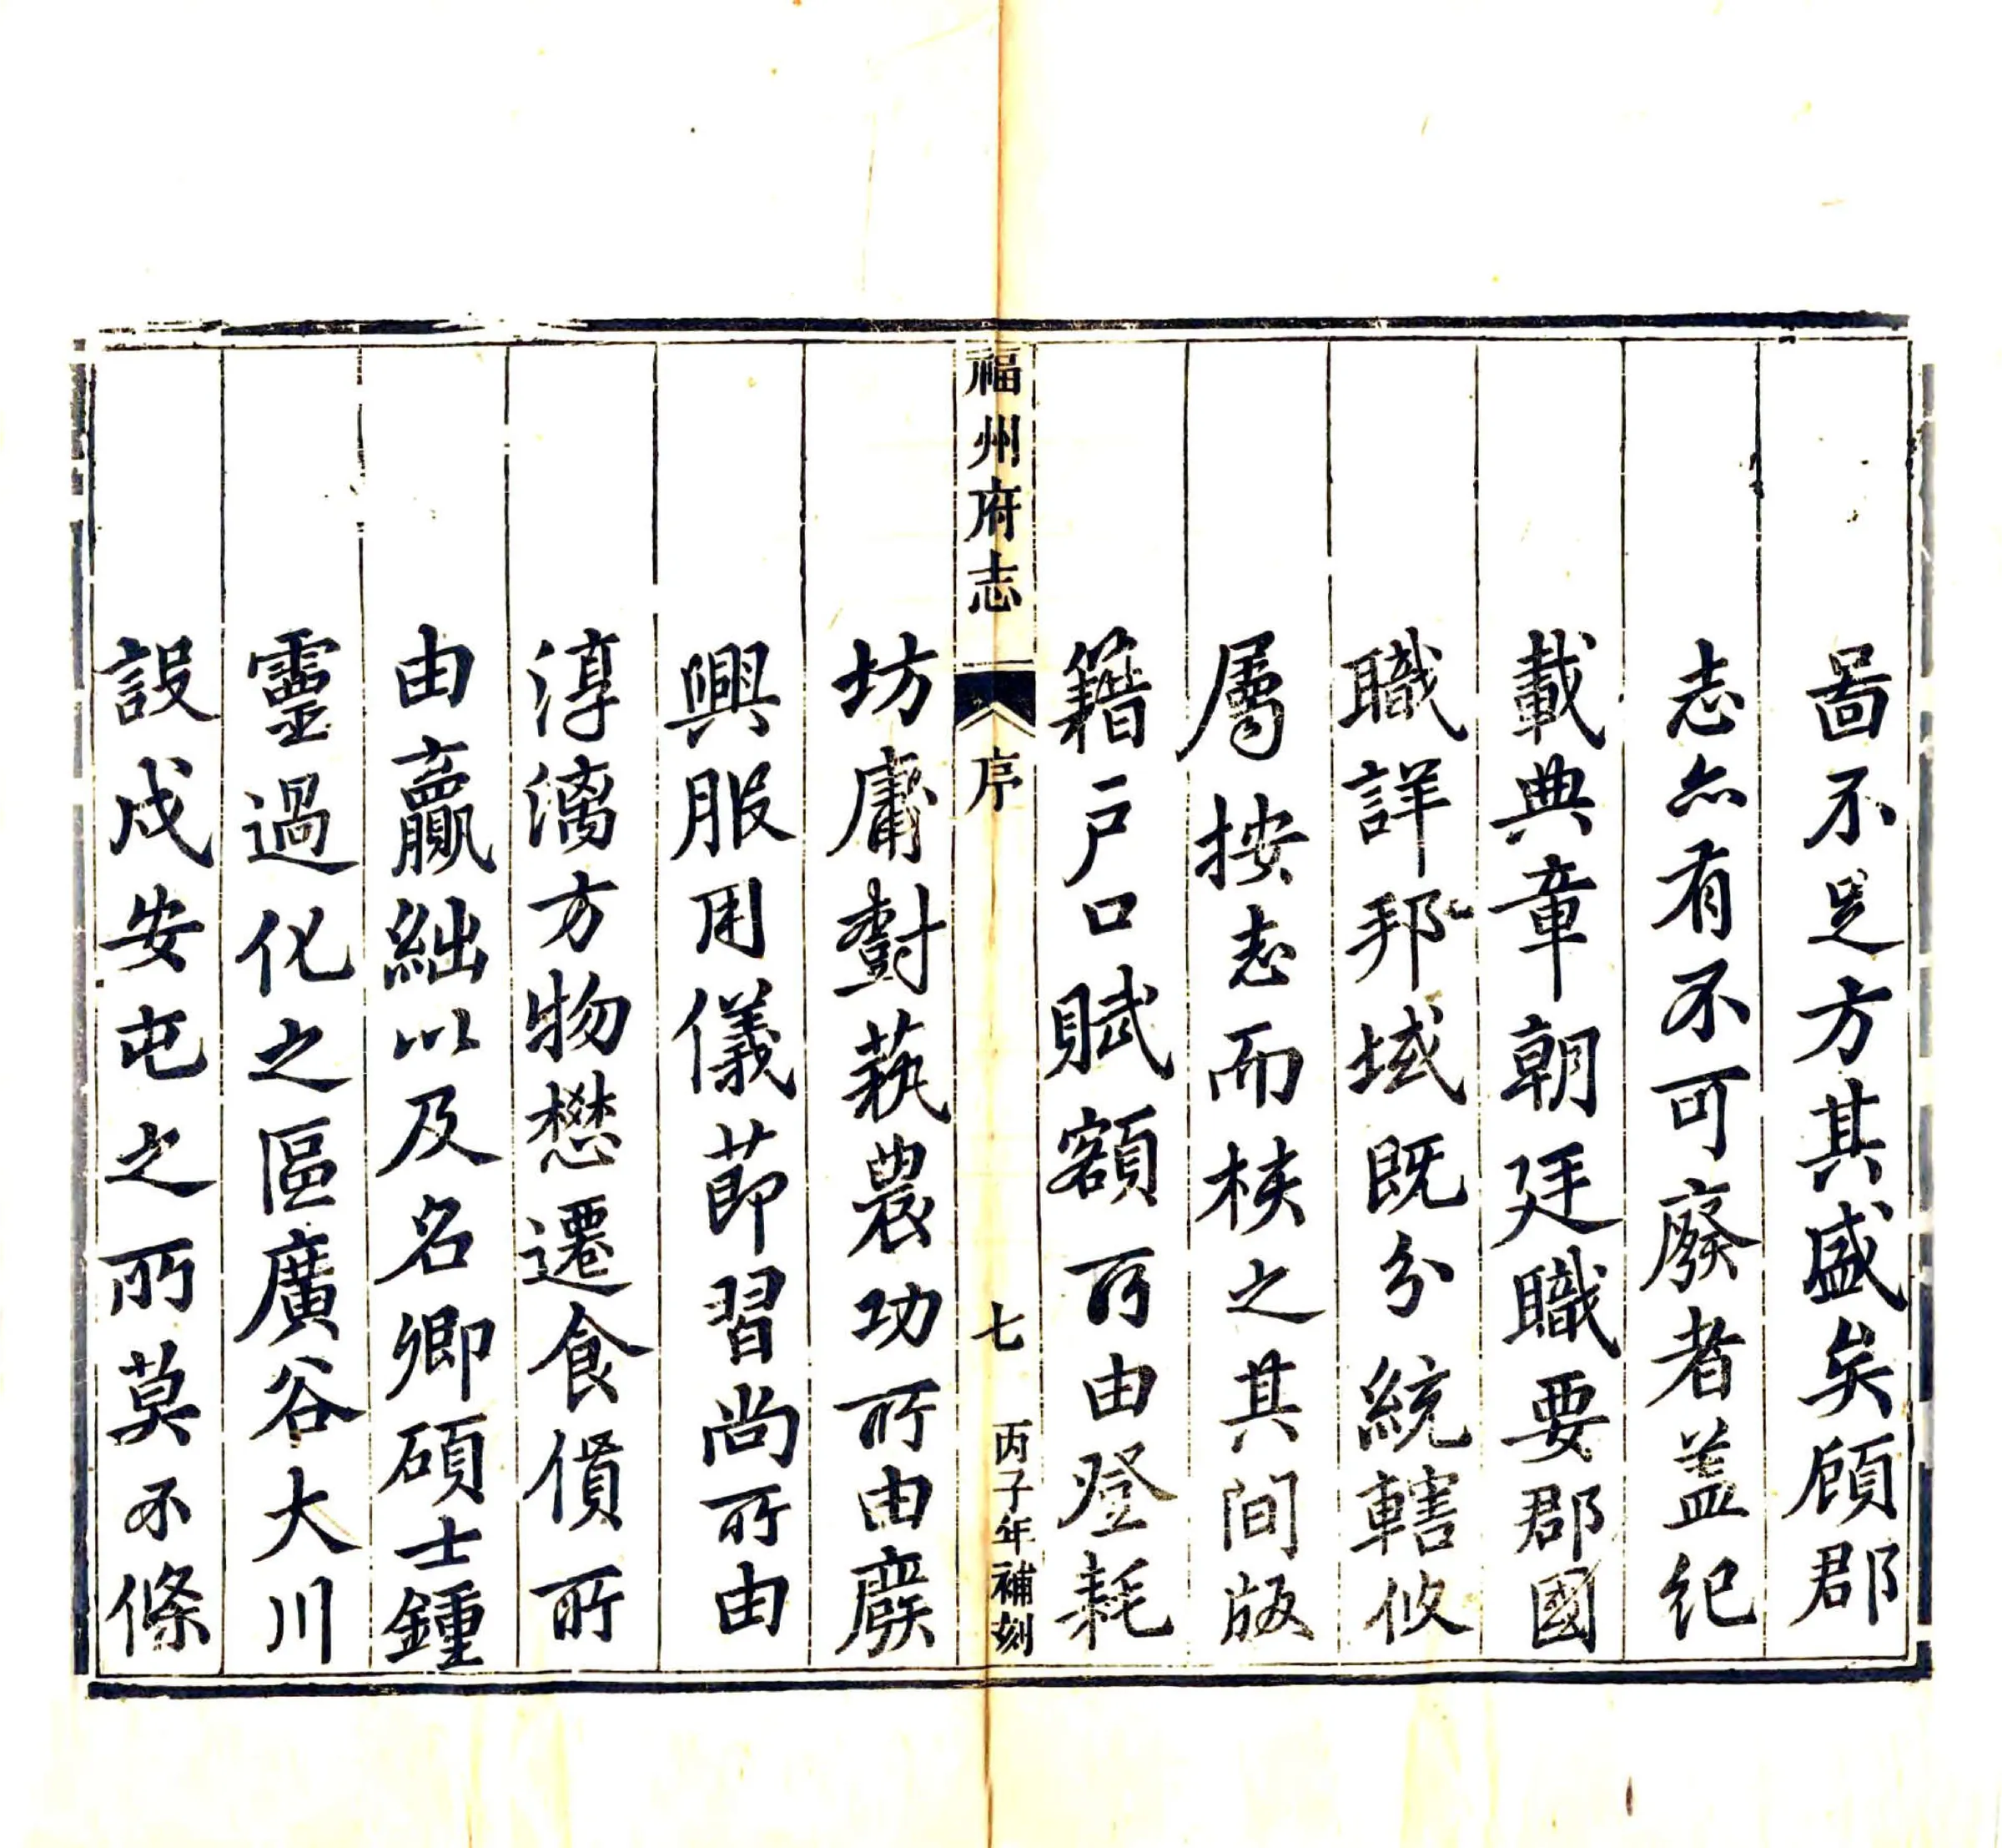 啚不足方其盛矣顧郡
志亦有不可廢者盖紀
載典章朝廷職要郡國
職詳邦域既分統轄攸
屬按志而核之其間版
籍戶口賦額所由登耗
福州府志
序
七
丙子年補刻
坊庸樹蓺農功所由廢
興服用儀莭習尚所由
淳漓方物懋遷食貨所
由贏絀以及名卿碩士鍾
靈過化之區廣谷大川
設戍安屯之所莫不條